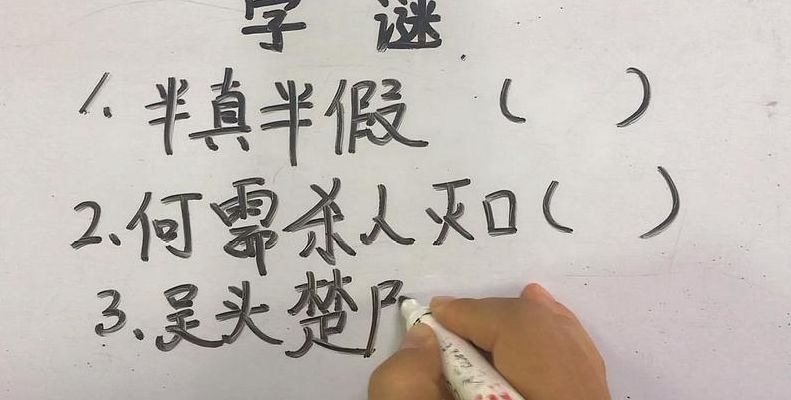 字 谜
1. 半真半假 ( )
2. 何需杀人灭口 ( )
3. 吴头楚